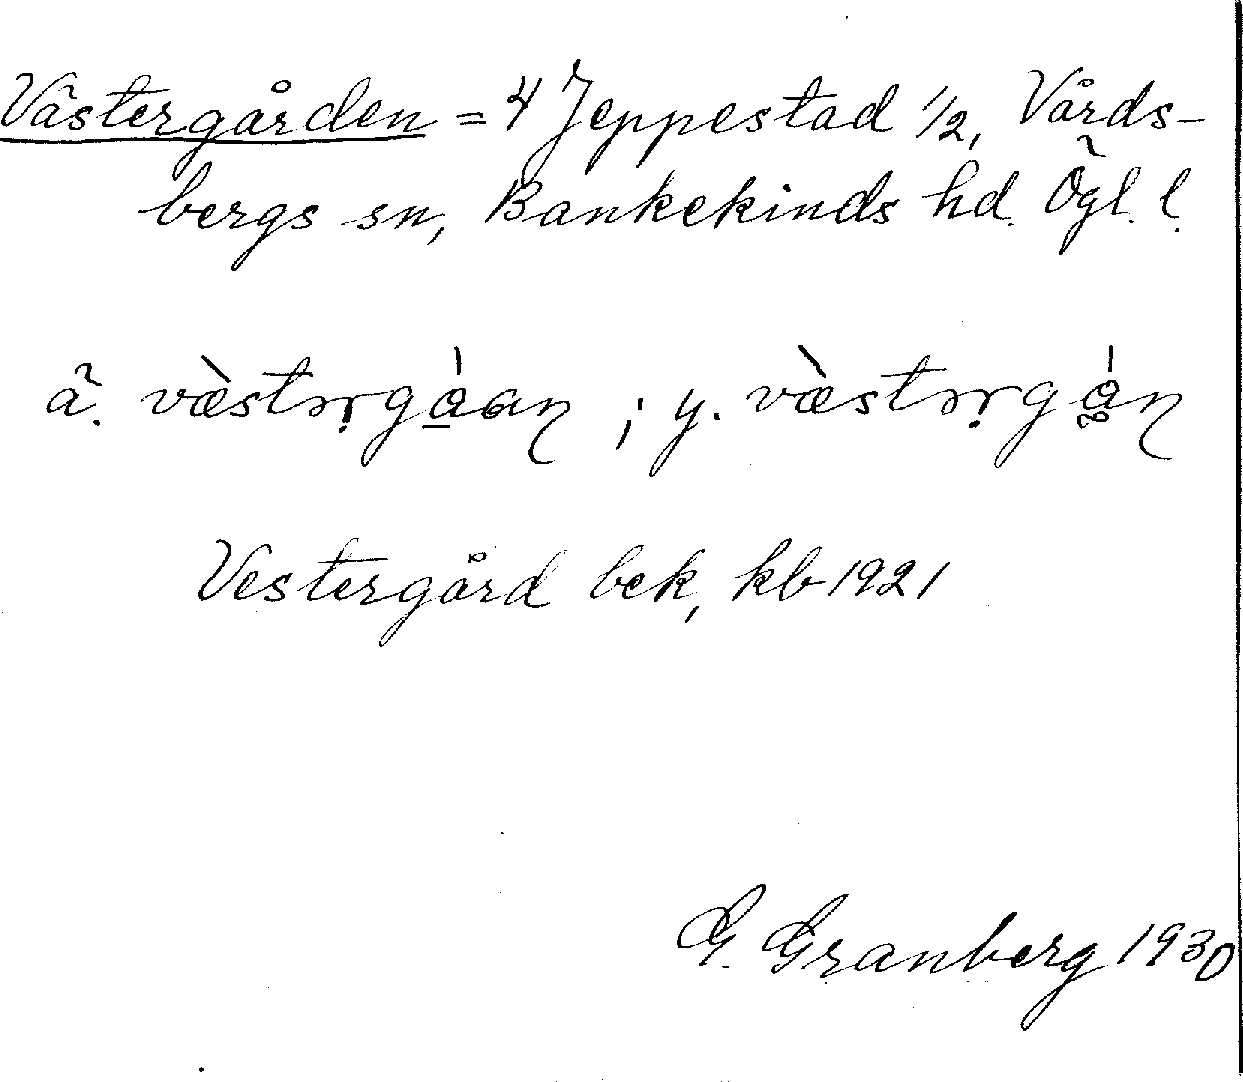 Västergården = 4 Jeppestad 1/2, Vårds-
bergs sn, Bankekinds hd. Ögl. l.
ä. ; y.
Vestergård bek, kb 1921
G. Granberg 1930